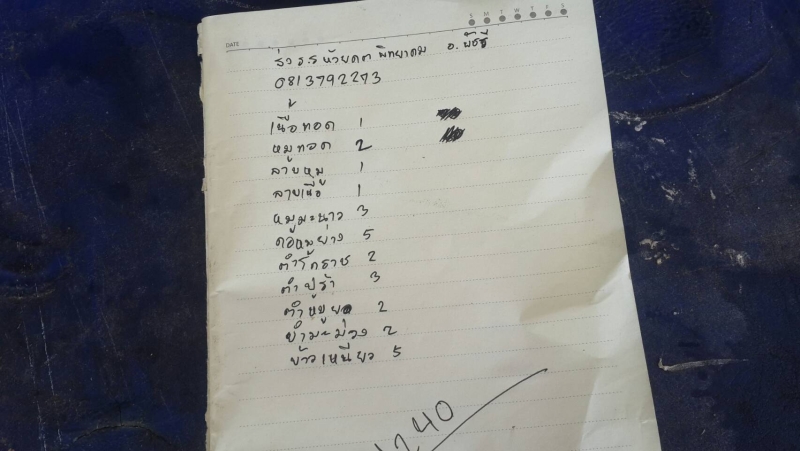 S M T W T F S
DATE
ส่ง ร.ร ห้วยคต พิทยาคม อ. พัชรี
0813792273
เนื้อทอด 1
หมูทอด 2
ลาบหมู 1
ลาบเนื้อ 1
หมูมะนาว 3
คอหมูย่าง 5
ตำโคราช 2
ตำปูร้า 3
ตำหมูยอ 2
ยำมะม่วง 2
ข้าวเหนียว 5
1240